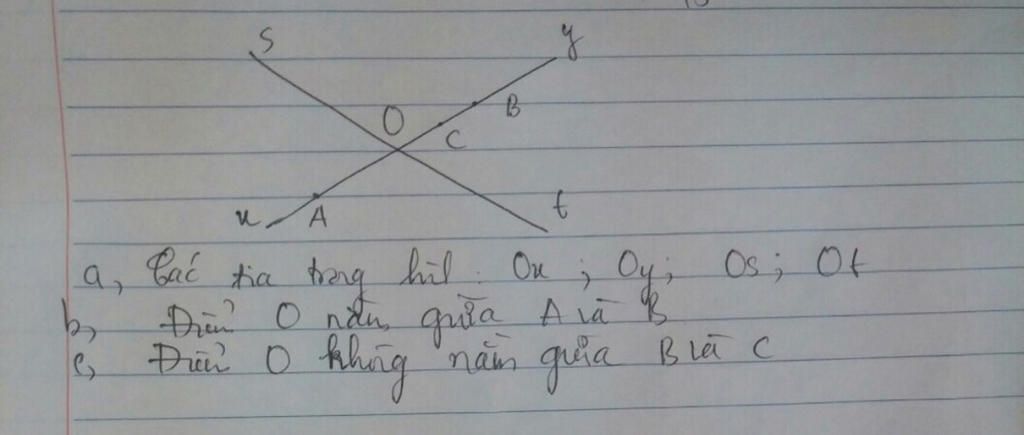 S
y
O
B
C
x
A
t
a, Các tia trong hình : Ox ; Oy ; Os ; Ot
b, Điểm O nằm giữa A và B
c, Điểm O không nằm giữa B và C